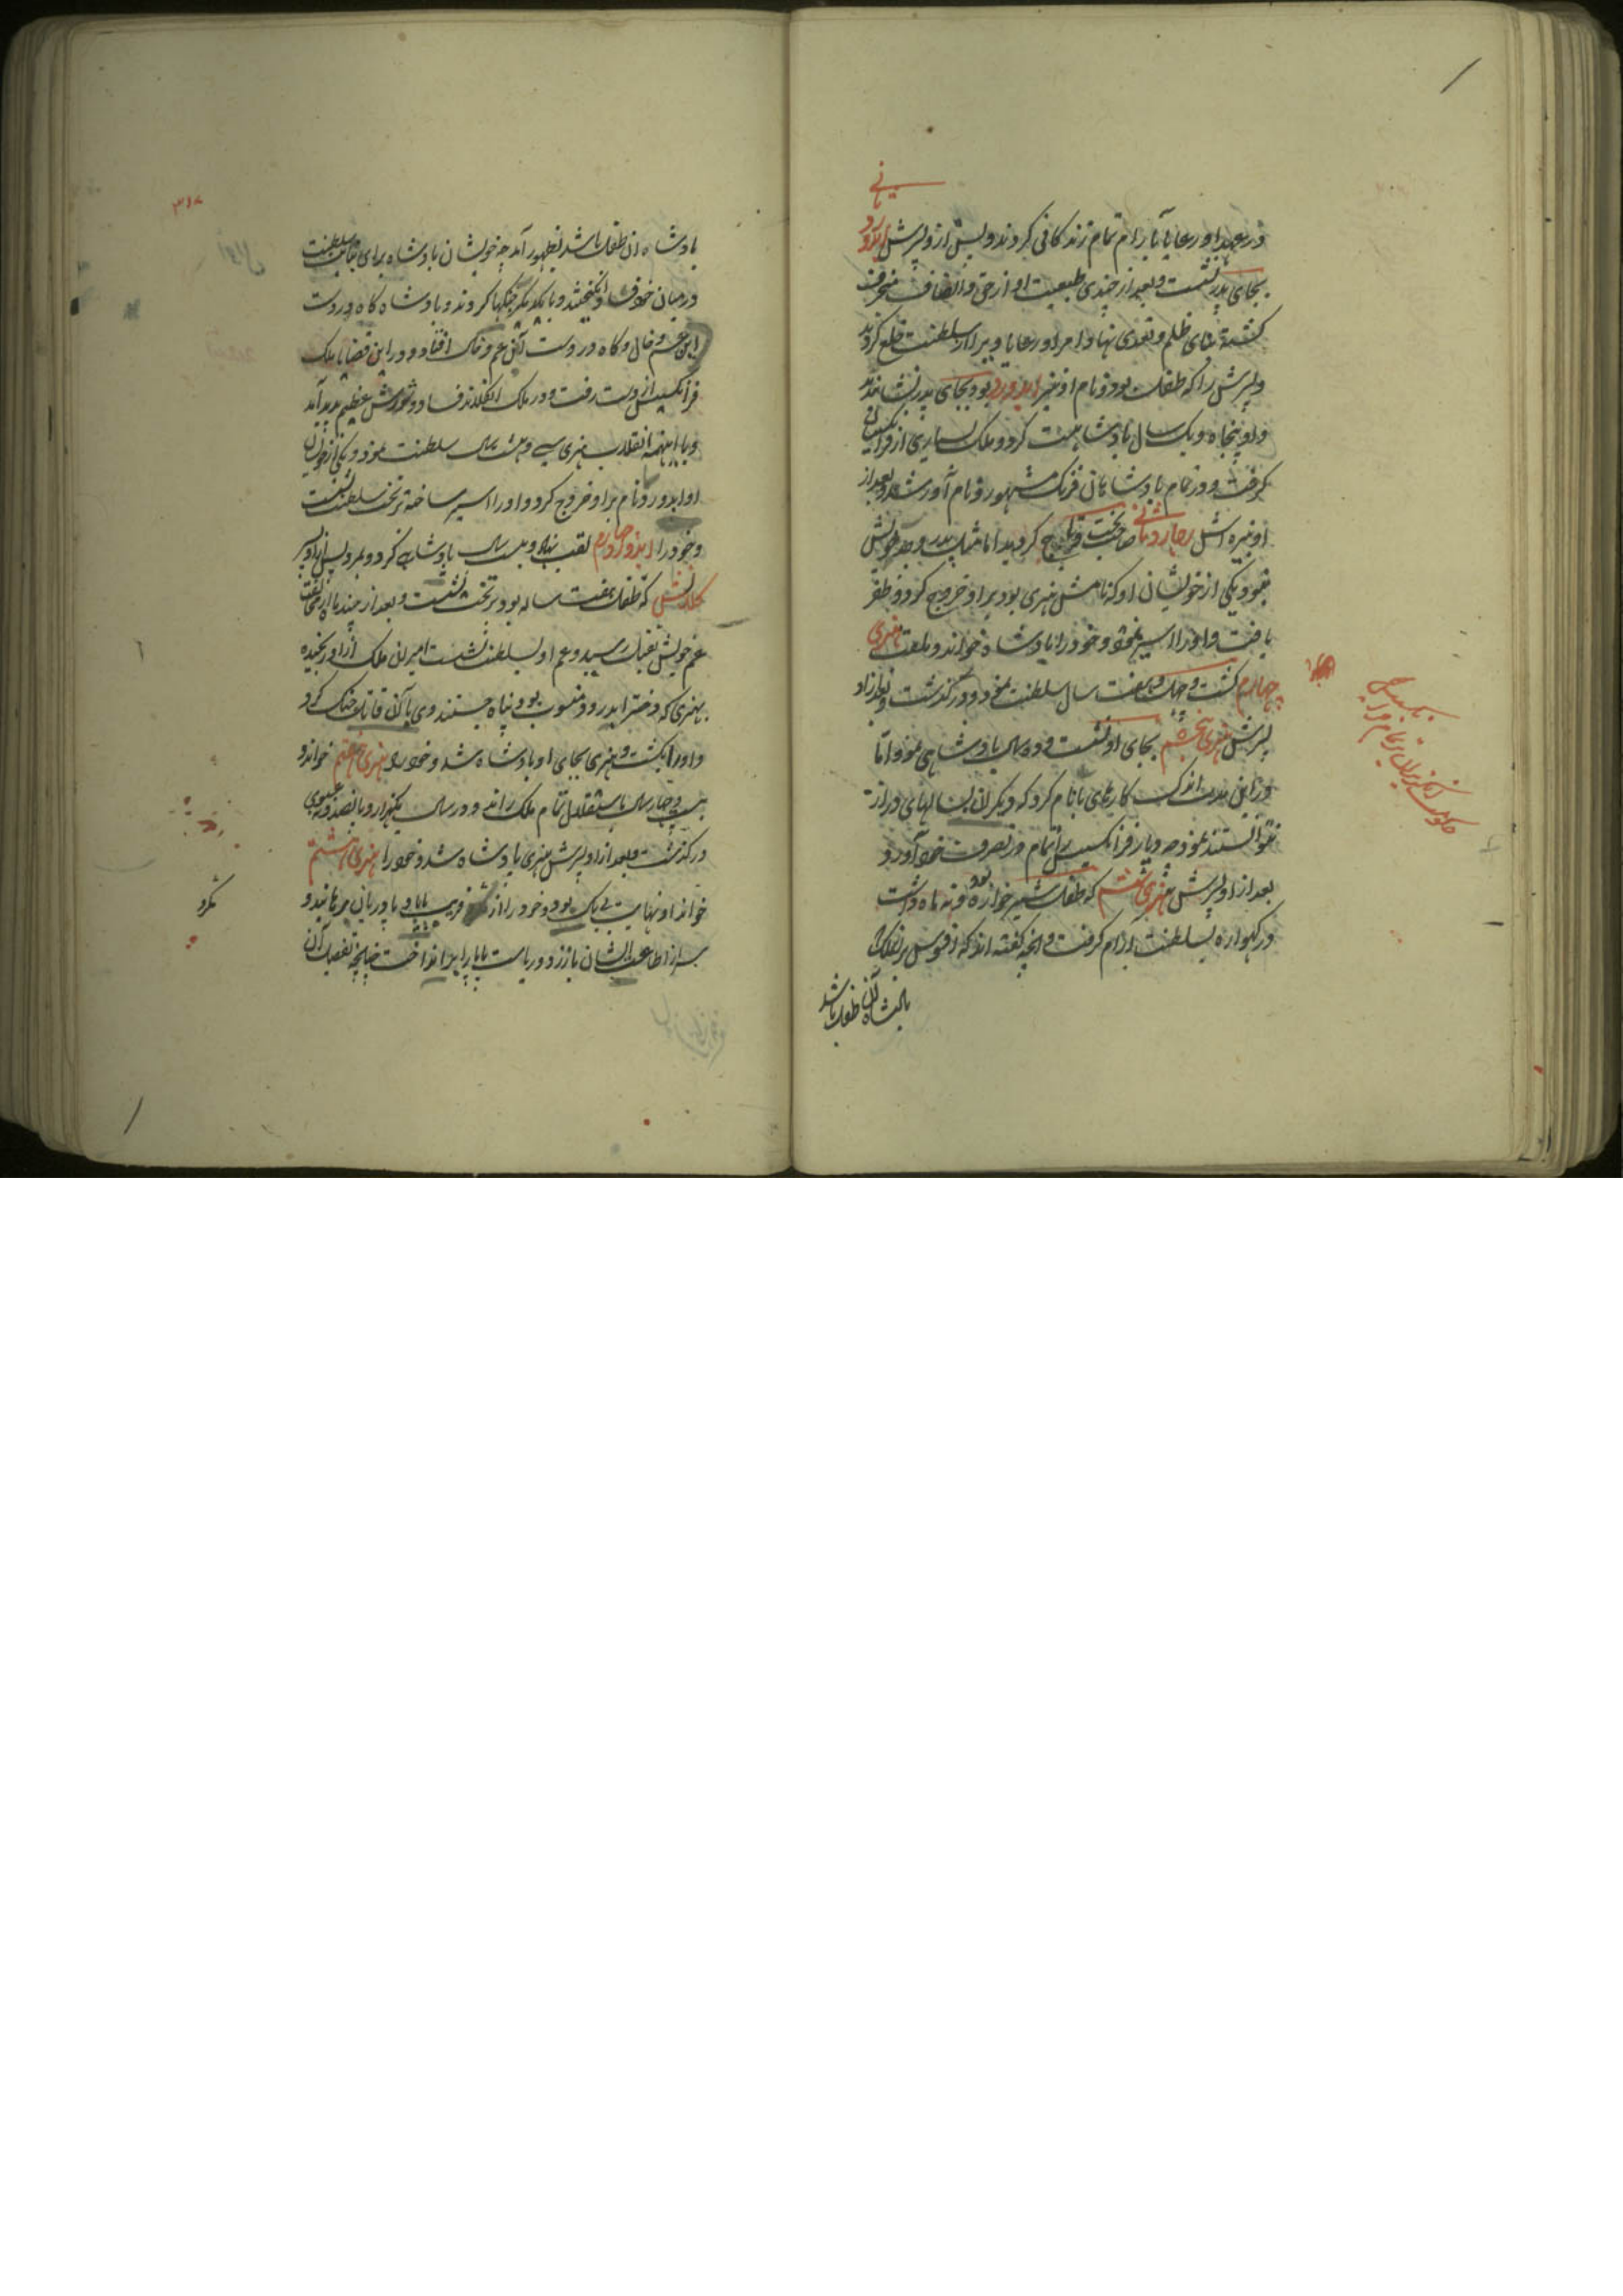 ثانی
در عهد او رعایا بآرام تمام زندکانی کردند و پس ازو پسرش ایدورد
بجای پدر نشست و بعد از چندی طبیعت او از حق و انصاف منحرف
کشته بنای ظلم و تعدی نهاد امرا و رعایا ویرا از سلطنت خلع کردند
و پسرش را که طفلی بود و نام او نیز ایدورد بود بجای پدر نشاندند
و او پنجاه و یک سال پادشاهت کرد و ملک بسیاری از فرانسیسان
کرفت و در تمام پادشاهان فرنک مشهور و نام آور شد و بعد از
او نبیره اش رچارد ثانی صاحب تخت و تاج کردید اما مثل پدر و جد خویش
نبود و یکی از خویشان او که نامش هنری بود بر او خروج کرد و ظفر
یافت و او را اسیر نمود و خود را پادشاه خواند و ملقب بهنری
چهارم کشت و چهل و هفت سال سلطنت نمود و درکذشت و بعد ازو
پسرش هنری پنجم بجای او نشست و ده سال پادشاهی نمود اما
در این مدت اندک کارهای با نام کرد که دیکران بسالهای دراز
نتوانستند نمود و دیار فرانسیس را تمام در تصرف خود آورد
بعد از او پسرش هنری ششم که طفل شیر خواره بود و نه ماه داشت
در کهواره بسلطنت آرام کرفت و آنچه کفته اند که افسوس بر ملک
که پادشاه آن طفل باشد
حکومت انکریزان بر تمام فرانسیس
۳۱۸
پادشاه آن طفل باشد بظهور آمد چه خویشان پادشاه برای نیابت سلطنت
در میان خود فساد انکیختند و با یکدیکر جنکها کردند و پادشاه کاه در دست
این عم و خال و کاه در دست آن عم و خال افتاد و در این قضایا ملک
فرانسیس از دست رفت و در ملک انکلاند فساد و شورش عظیم پدید آمد
و با اینهمه انقلاب هنری سی و هشت سال سلطنت نمود و یکی از خویشان
او ایدورد نام بر او خروج کرد و او را اسیر ساخته بر تخت سلطنت نشست
و خود را ایدورد چهارم لقب نهاد و بیست سال پادشاهی کرد و بمرد پس از او پسر
کلانش که طفل هفت ساله بود بر تخت نشست و بعد از چند ماه از مخالفت
عم خویش بقتل رسید و عم او بسلطنت نشست امیران ملک ازو رنجیده
بهنری که دختر ایدورد منسوب بود پناه جستند وی با آن قاتل جنک کرد
و او را بکشت و هنری بجای او پادشاه شد و خود را هنری هفتم خواند و
بیست و چهار سال باستقلال تمام ملک رانده و در سال یکهزار و پانصد و نه عیسوی
درکذشت و بعد از او پسرش هنری پادشاه شد و خود را هنری هشتم
خواند او نهایت بی باک بود و خود را از فریب پاپا و پادریان برهانید و
سر از اطاعت ایشان باز زد و ریاست پاپا را بر انداخت چنانچه تفصیل آن